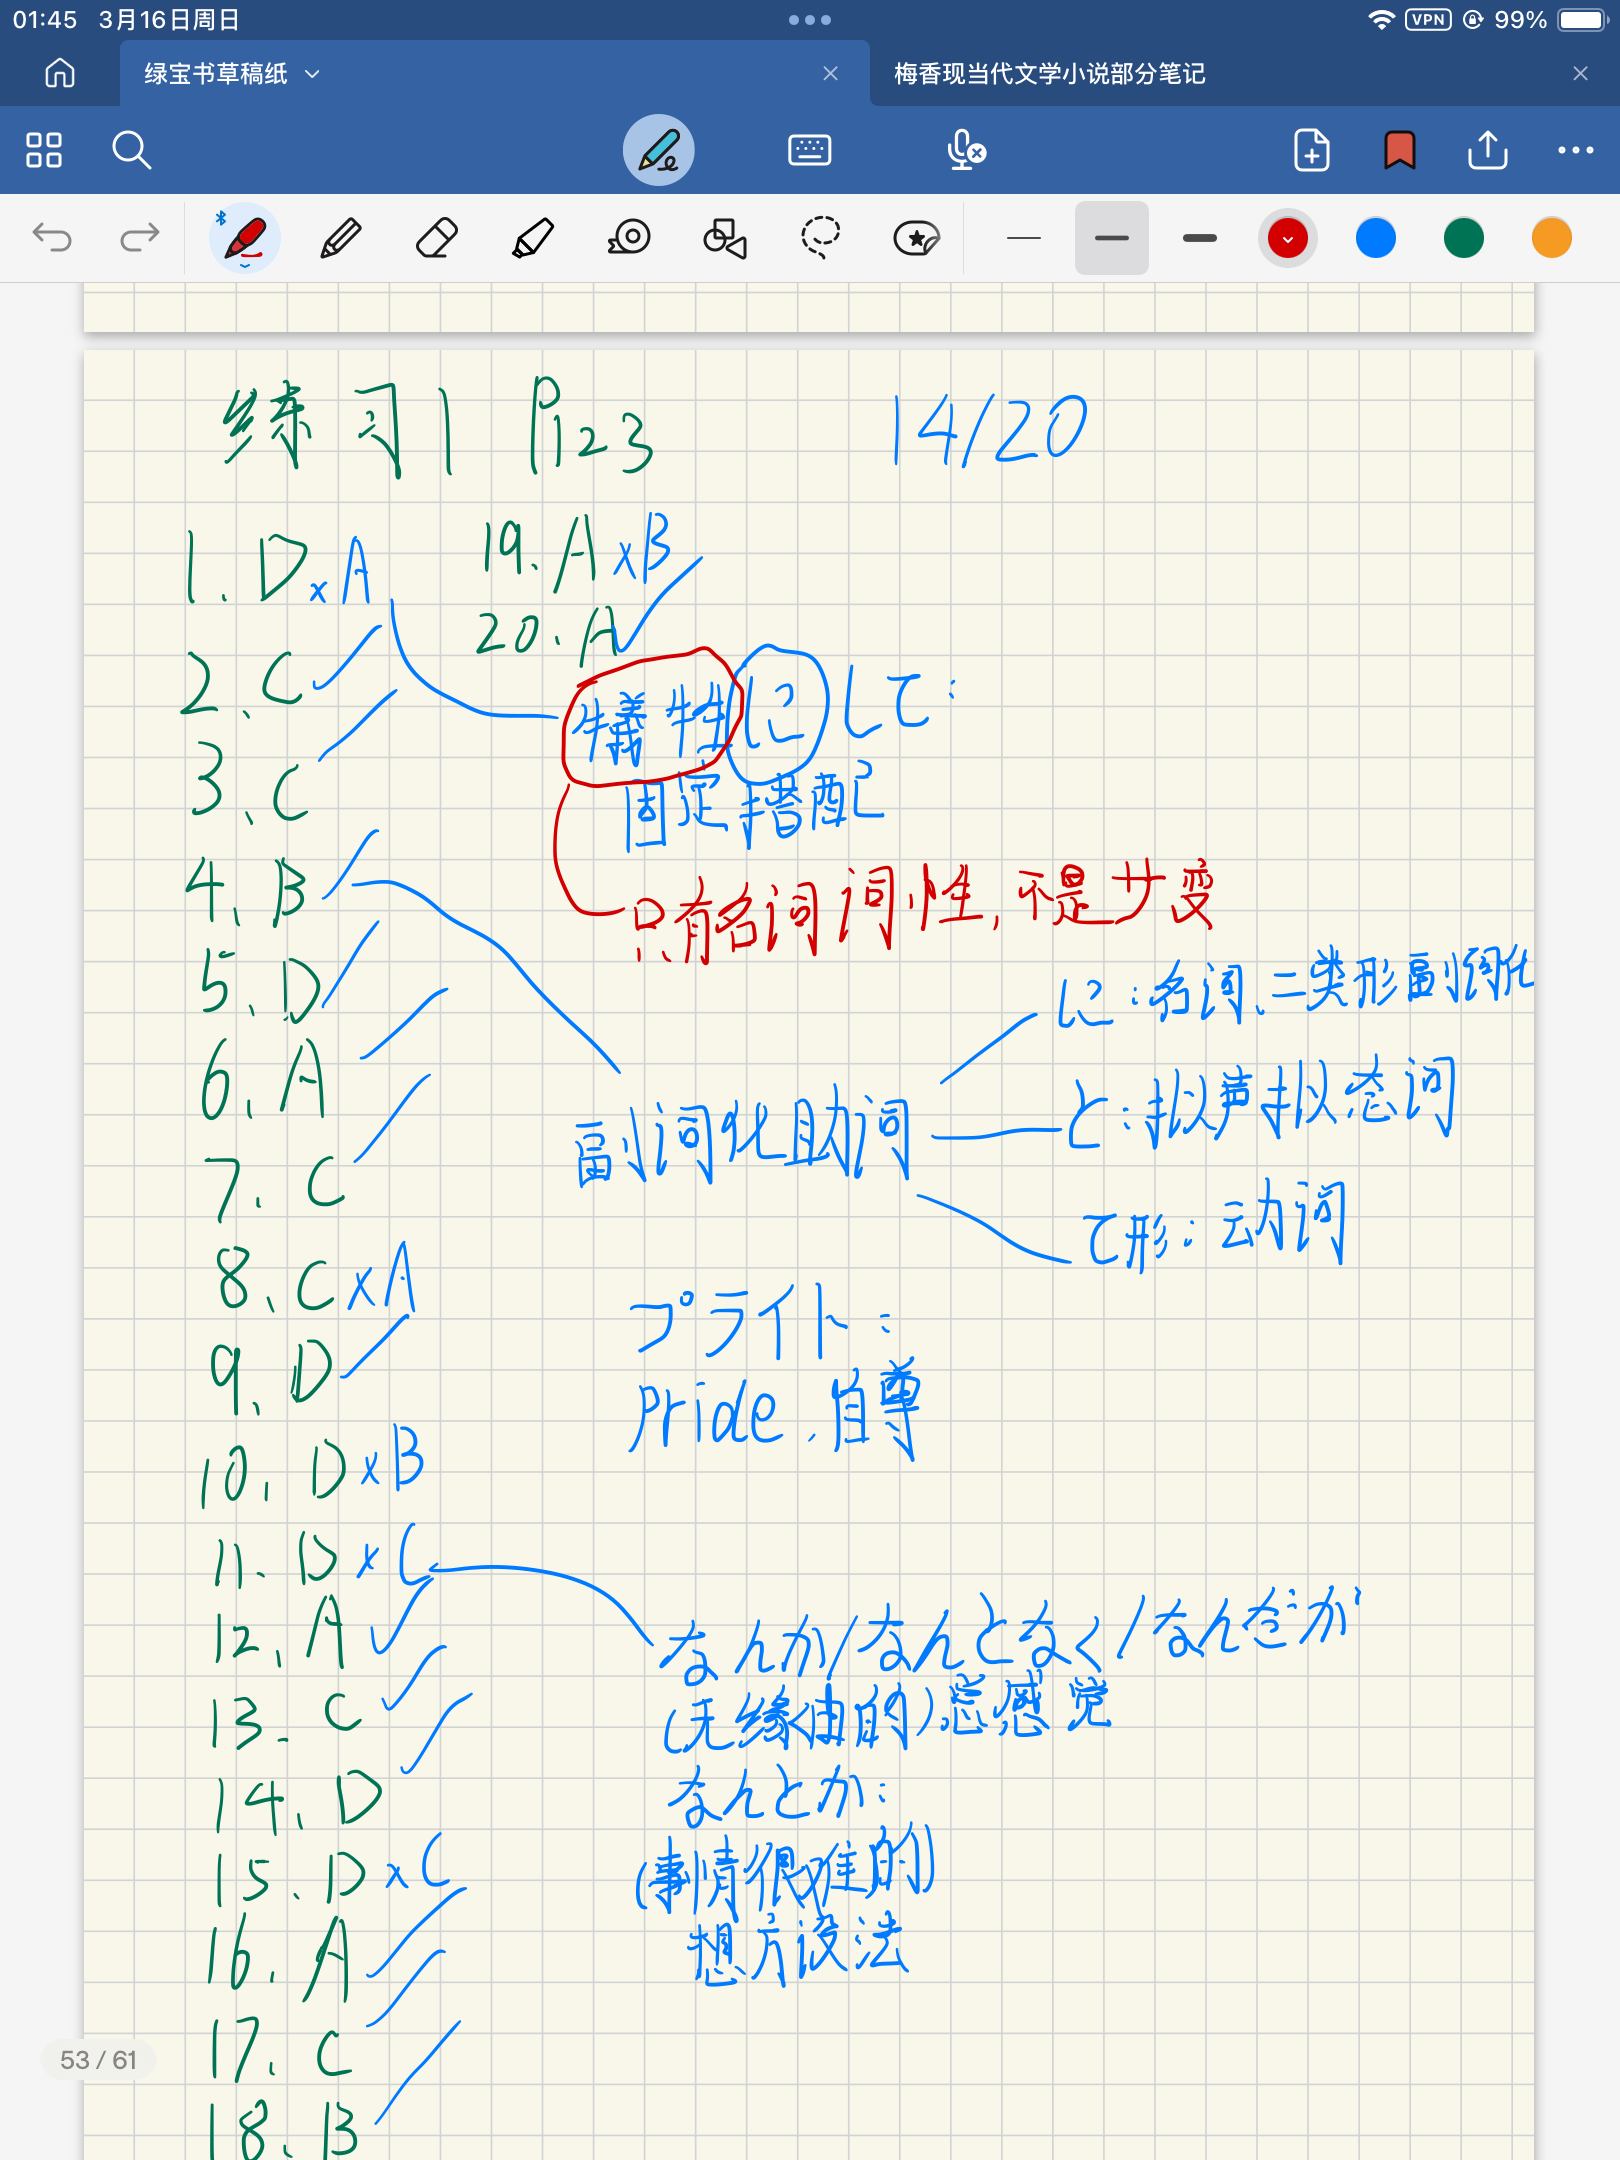 01:45 3月16日周日 VPN 99%
绿宝书草稿纸 梅香现当代文学小说部分笔记
练习1 P123 14/20
1. D×A
2、C
3、C
4、B
5、D
6、A
7、C
8、C×A
9、D
10、D×B
11、D×C
12、A
13、C
14、D
15、D×C
16、A
17、C
18、B
19. A×B
20、A
犠牲にして：
固定搭配
只有名词词性，不是サ变
副词化助词
に：名词、二类形副词化
と：拟声拟态词
て形：动词
プライト：
Pride，自尊
なんか/なんとなく/なんだか
(无缘由的)总感觉
なんとか：
(事情很难的)
想方设法
53 / 61